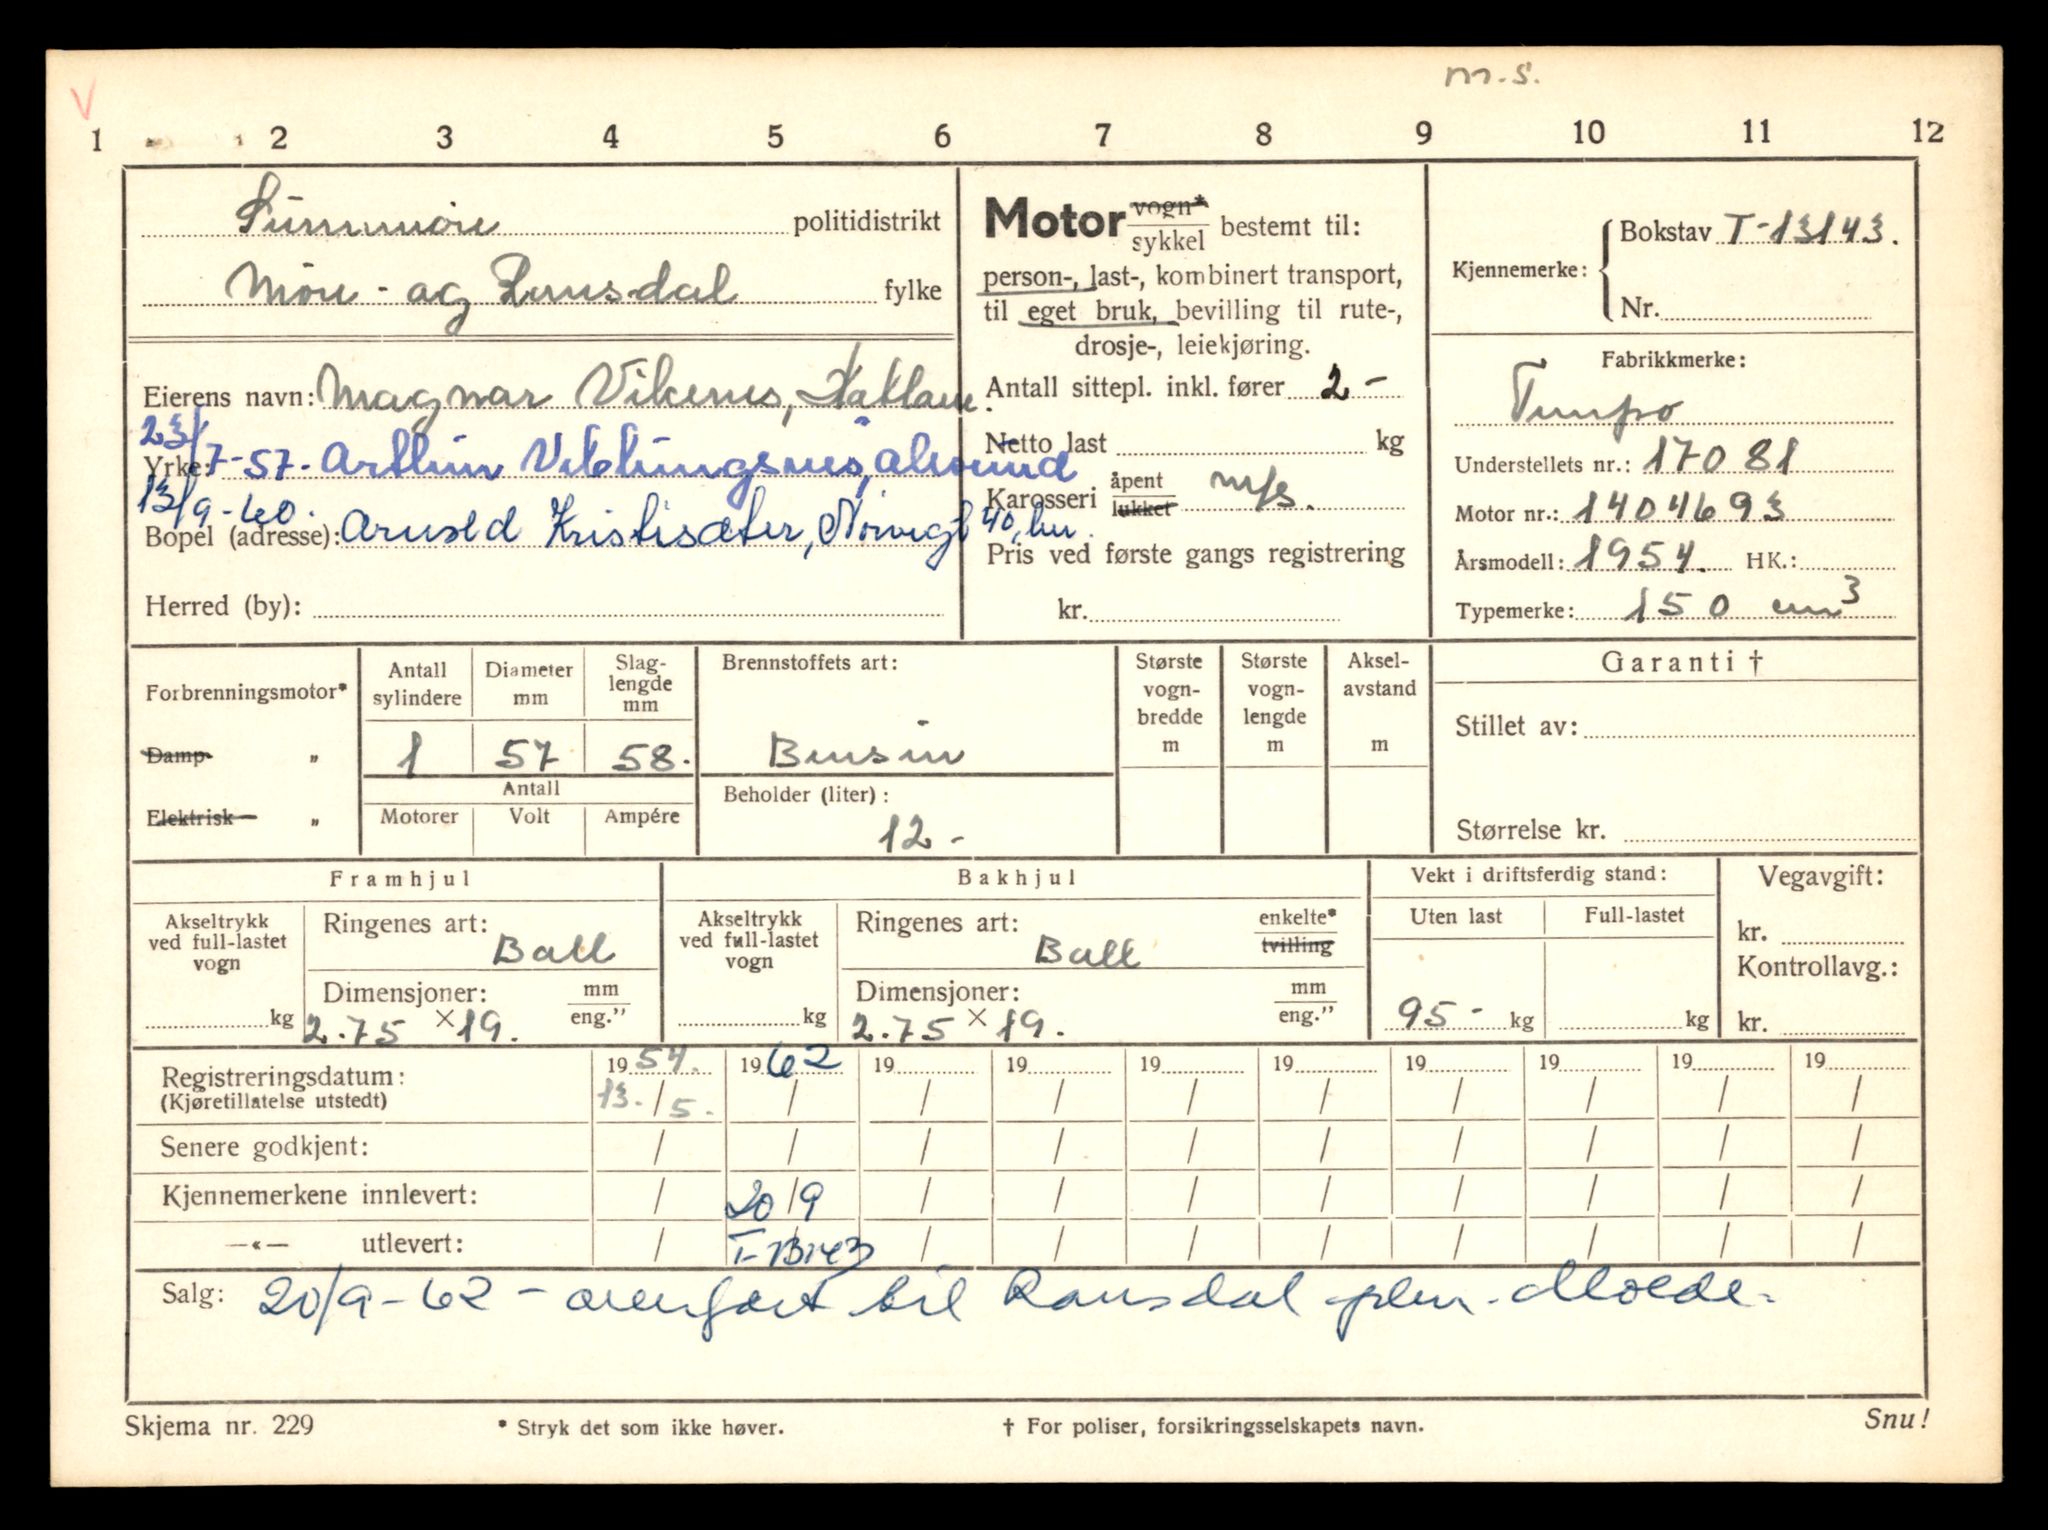 m.s.
V
1 2 3 4 5 6 7 8 9 10 11 12
Sunnmøre politidistrikt
Møre - og Romsdal fylke
Eierens navn: Magnar Vikenes,
23/7-57. Arthur
Yrke:
13/9-60.
Bopel (adresse): Arnold Kristisæter,
Herred (by):
Motor vogn* / sykkel bestemt til:
person-, last-, kombinert transport,
til eget bruk, bevilling til rute-,
drosje-, leiekjøring.
Antall sittepl. inkl. fører 2 -
Netto last kg
Karosseri åpent / lukket m/s.
Pris ved første gangs registrering
kr.
Kjennemerke: Bokstav T-13143.
Nr.
Fabrikkmerke:
Tempo
Understellets nr.: 17081
Motor nr.: 1404693
Årsmodell: 1954. HK.:
Typemerke: 150 cm3
Forbrenningsmotor*
Damp- „
Elektrisk- „
Antall sylindere Diameter mm Slag-lengde mm
1 57 58.
Antall
Motorer Volt Ampére
Brennstoffets art:
Bensin
Beholder (liter):
12 -
Største vogn-bredde m
Største vogn-lengde m
Aksel-avstand m
Garanti †
Stillet av:
Størrelse kr.
Framhjul
Akseltrykk ved full-lastet vogn
kg
Ringenes art:
Ball
Dimensjoner: mm / eng."
2.75 × 19.
Bakhjul
Akseltrykk ved full-lastet vogn
kg
Ringenes art: enkelte* / tvilling
Ball
Dimensjoner: mm / eng."
2.75 × 19.
Vekt i driftsferdig stand:
Uten last Full-lastet
95 - kg kg
Vegavgift:
kr.
Kontrollavg.:
kr.
19 54. 19 62 19 19 19 19 19 19 19 19
Registreringsdatum: 13. / 5. / / / / / / / / /
(Kjøretillatelse utstedt)
Senere godkjent: / / / / / / / / / /
Kjennemerkene innlevert: / 20/9 / / / / / / / /
—«— utlevert: / T-13143 / / / / / / / /
Salg: 20/9-62 - overført til Romsdal pkm. Molde.
Skjema nr. 229
* Stryk det som ikke høver.
† For poliser, forsikringsselskapets navn.
Snu!